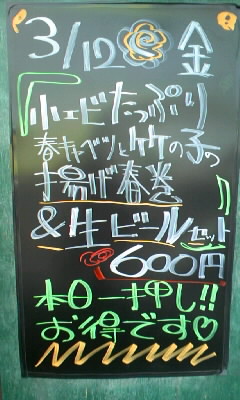 3/12 金
「小エビたっぷり
春キャベツと竹の子の
揚げ春巻」
&生ビールセット
600円
本日一押し!!
お得です♡